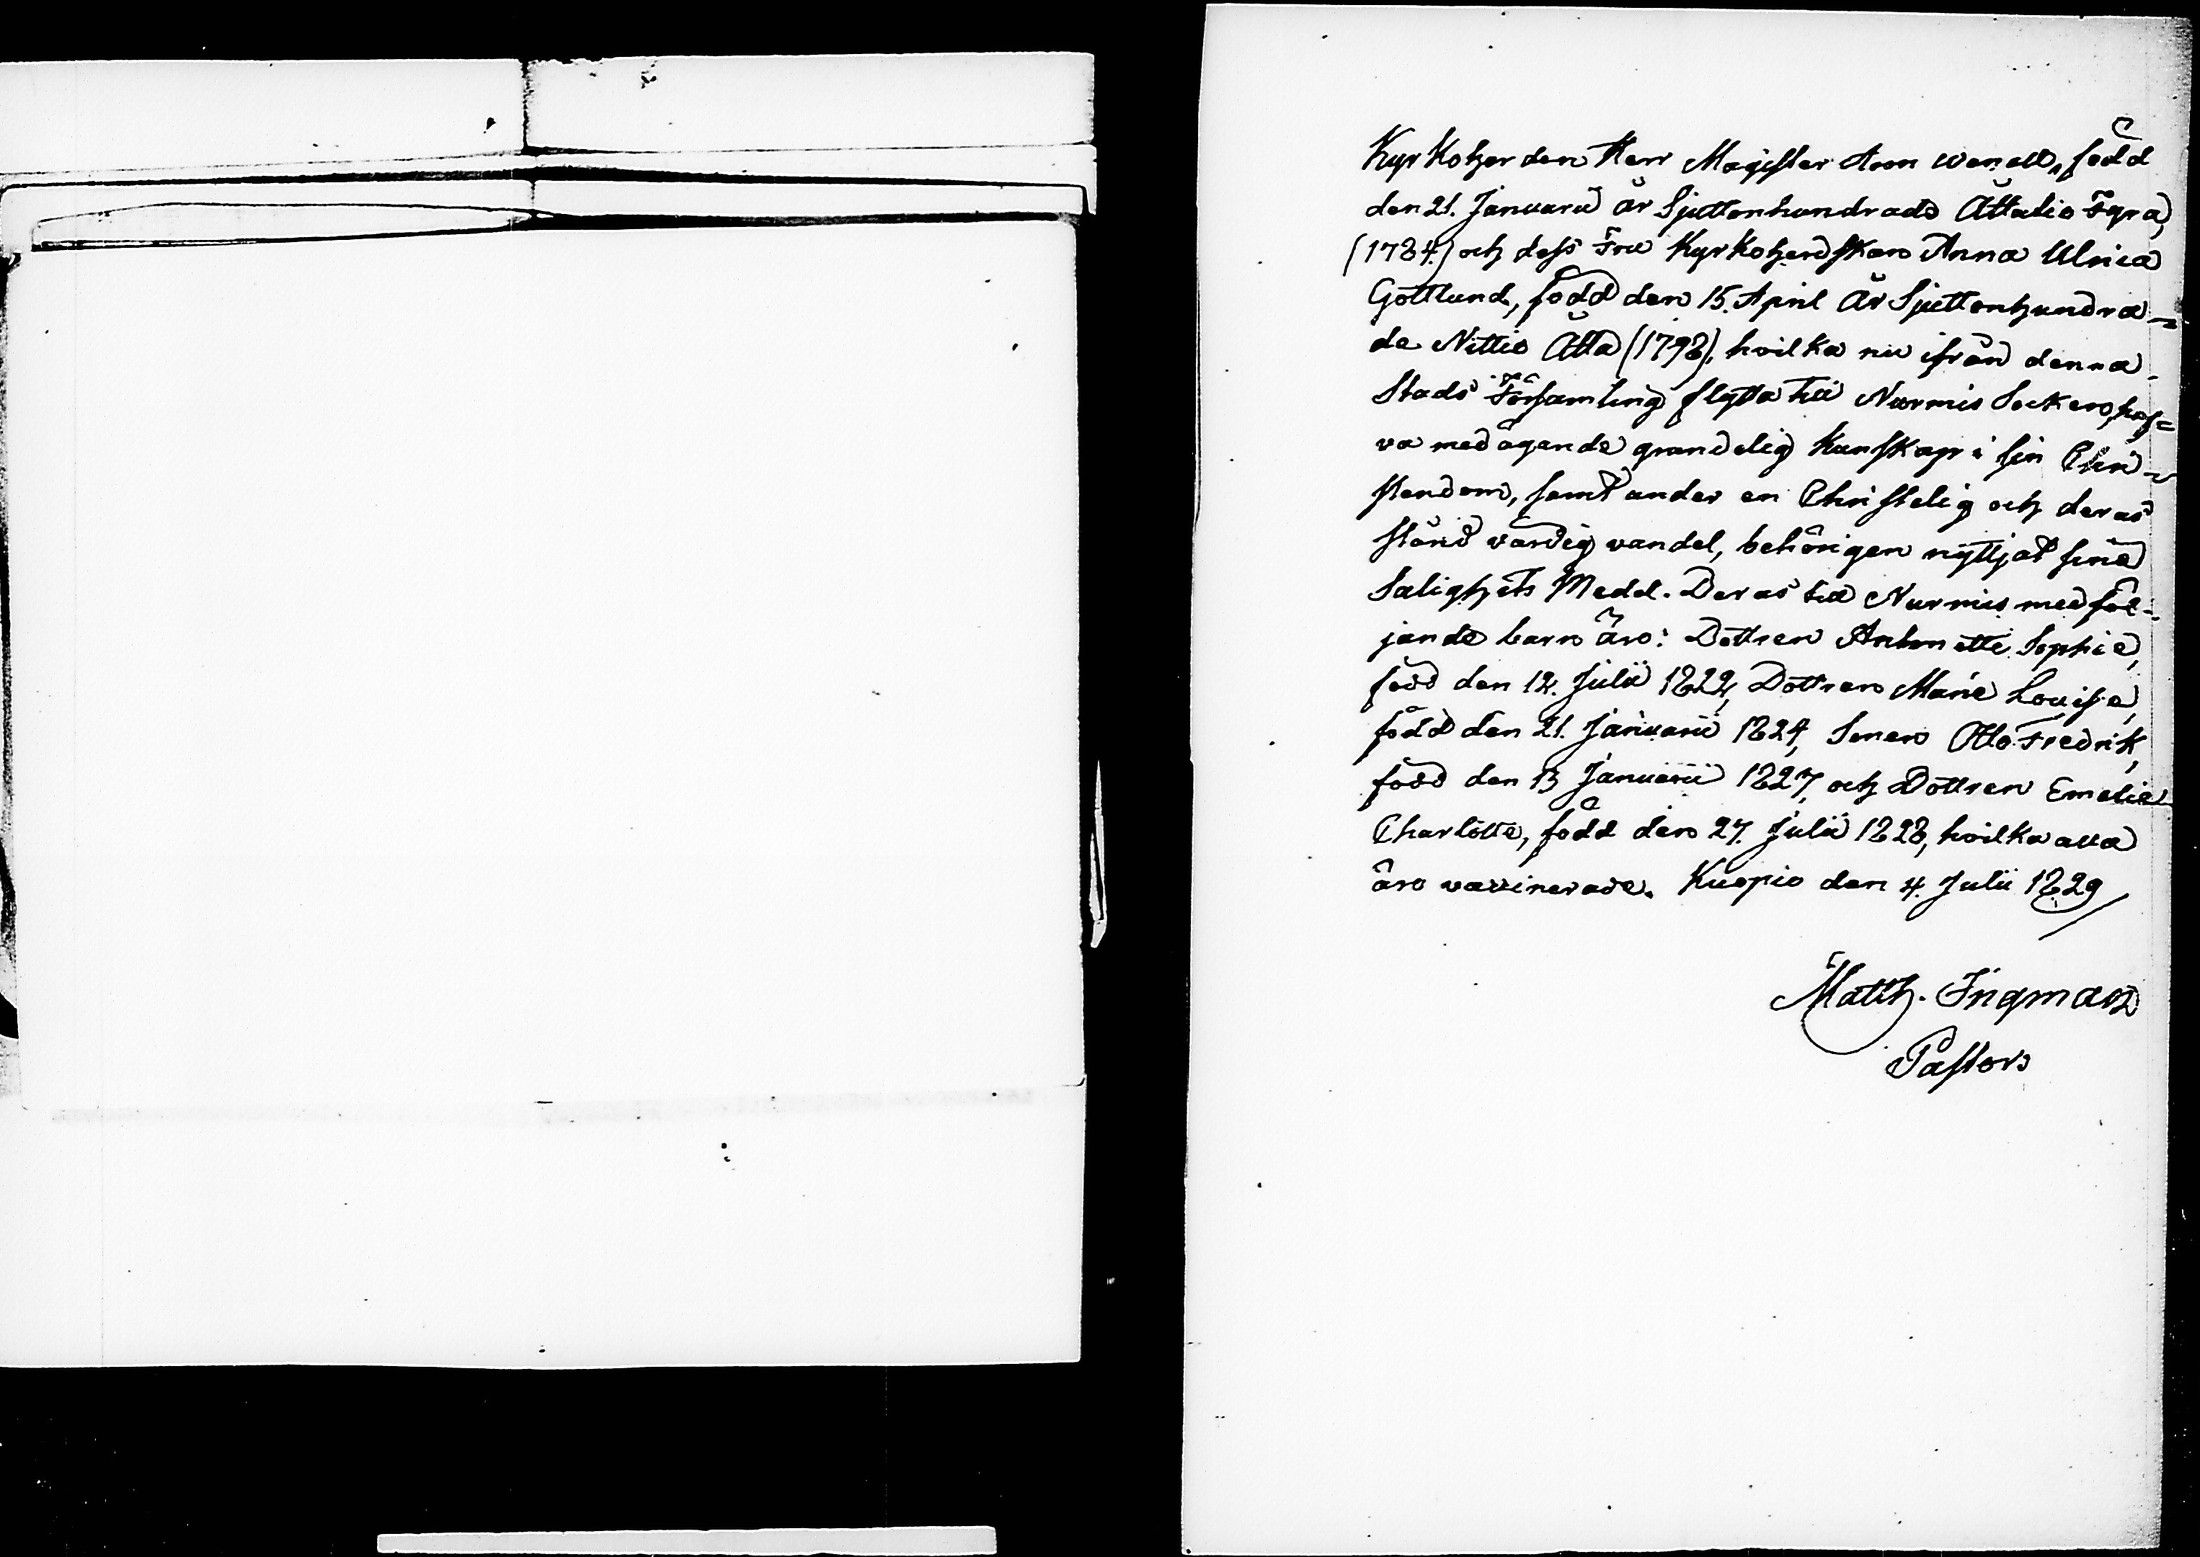 Kyrkoherden Herr Magister Aron Wenell, född
den 21. Januarii År Sjuttonhundrade Åttatio Fyra,
(1784.) och dess Fru Kyrkoherdskan Anna Ulrica
Gottlund, född den 15. April År Sjuttonhundra-
de Nittio Åtta (1798), hvilka nu ifrån denna
Stads Församling flytta till Nurmis Socken, haf=
va med ägande grundelig Kunskap i sin Chri-
stendom, samt under en Christelig och deras
stånd värdig vandel, behörigen nyttjat sine
Salighets Medel. Deras till Nurmis medföl-
jande barn äro: Dottren Antonette Sophie,
född den 12. Julii 1822, Dottren Marie Louise,
född den 21. Januarii 1824, Sonen Otto Fredrik,
född den 13 Januarii 1827, och Dottren Emelie
Charlotte, född den 27. Julii 1828, hvilka alla
äro vaccinerade. Kuopio den 4. Julii 1829
Matth. Ingman
Pastor